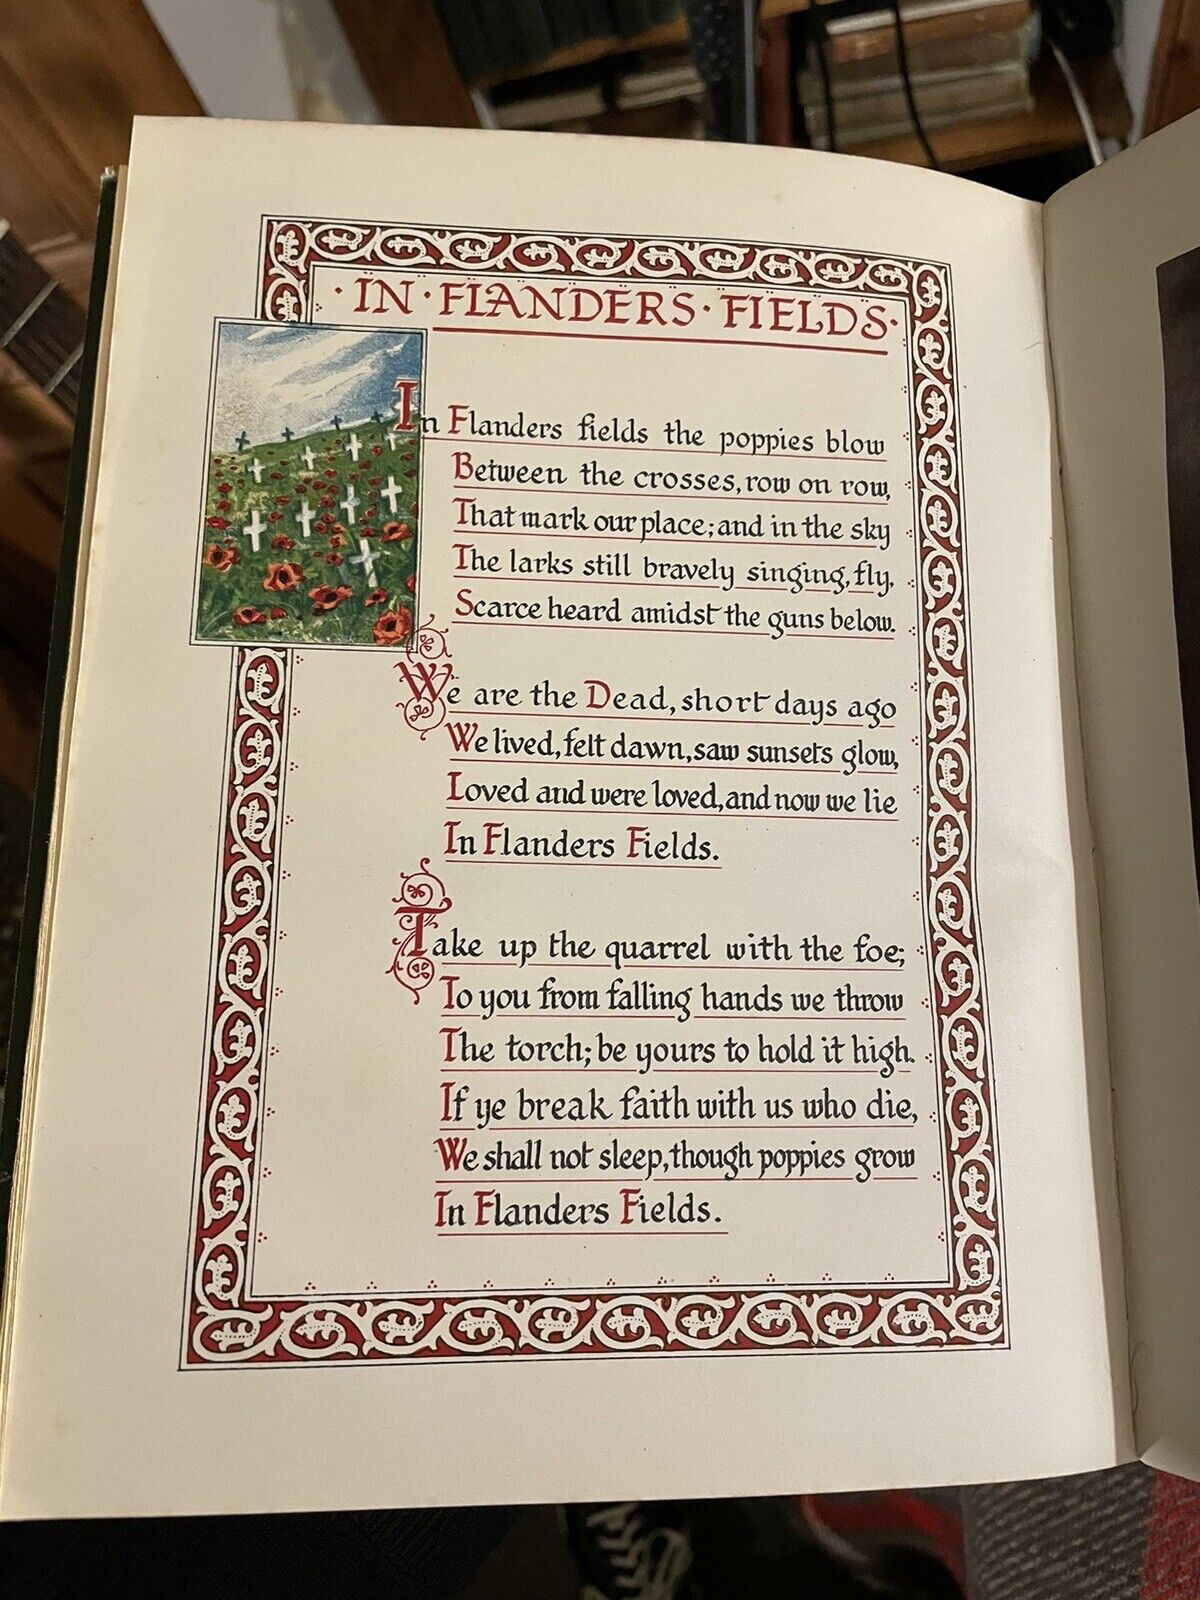 · IN · FLANDERS · FIELDS ·
In Flanders fields the poppies blow
Between the crosses, row on row,
That mark our place; and in the sky
The larks still bravely singing, fly,
Scarce heard amidst the guns below.
We are the Dead, short days ago
We lived, felt dawn, saw sunsets glow,
Loved and were loved, and now we lie
In Flanders Fields.
Take up the quarrel with the foe;
To you from falling hands we throw
The torch; be yours to hold it high.
If ye break faith with us who die,
We shall not sleep, though poppies grow
In Flanders Fields.